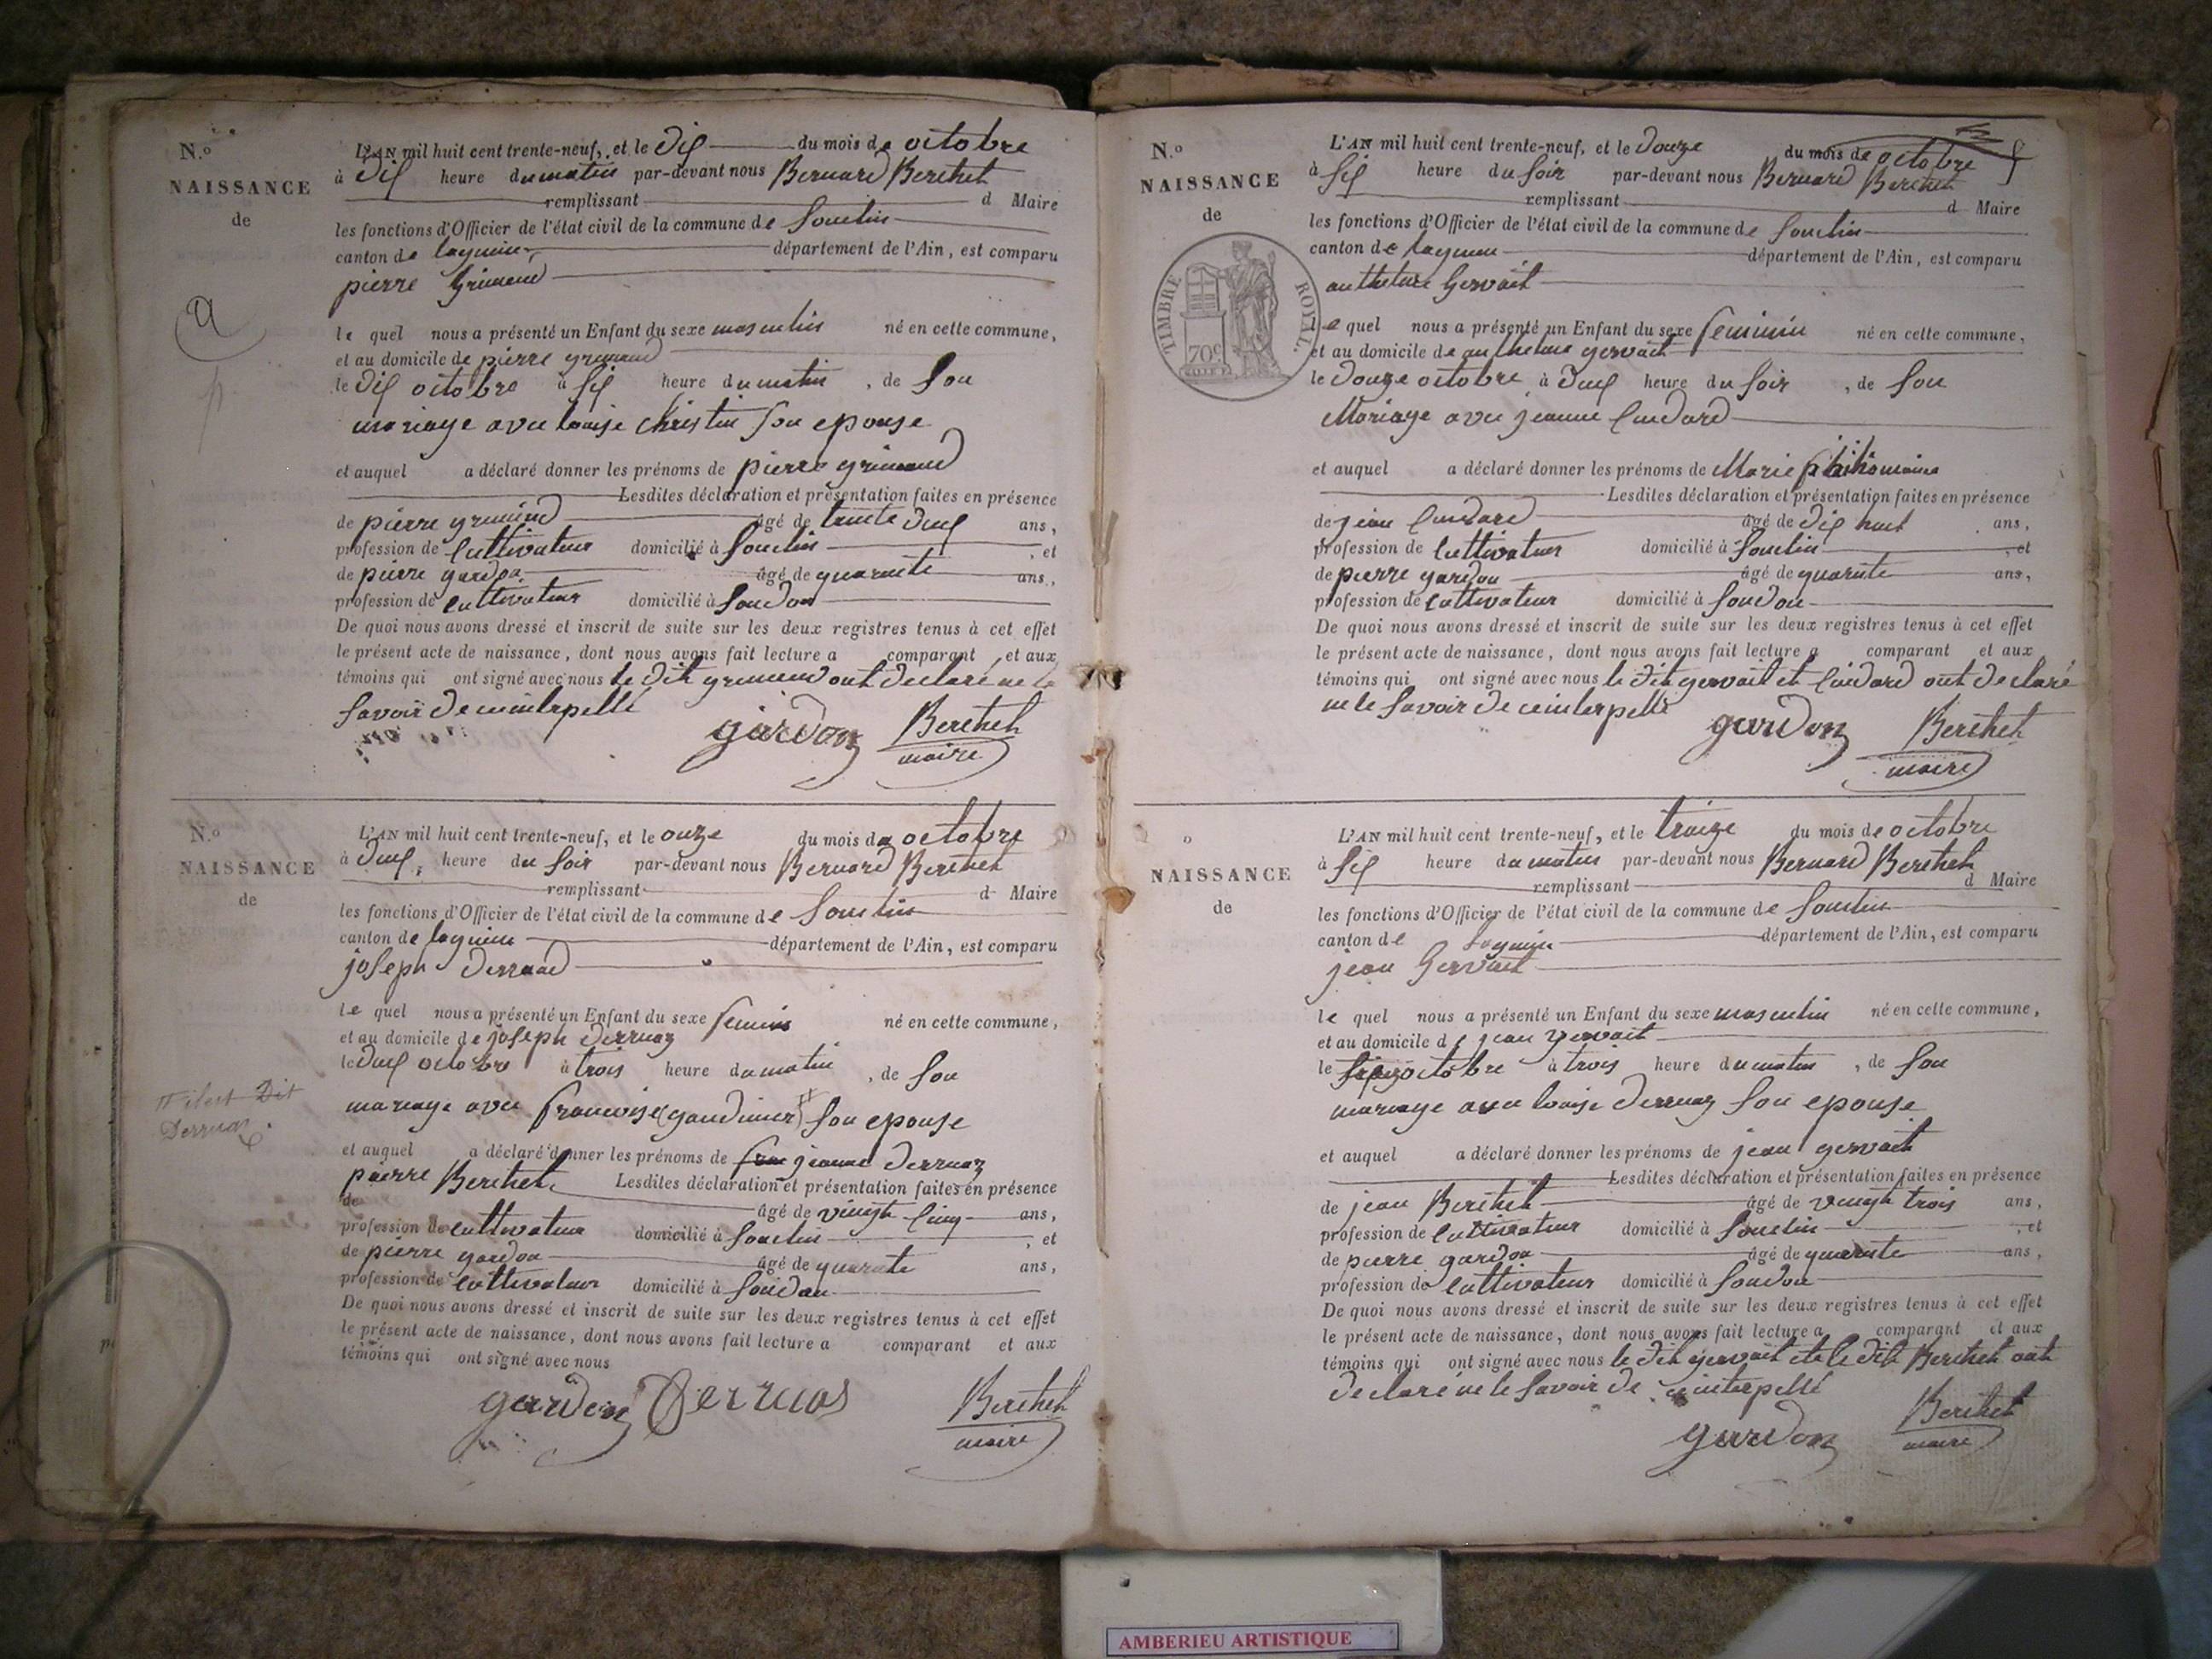 N.o
NAISSANCE
de
L'AN mil huit cent trente-neuf, et le dix du mois de octobre
à dix heure du matin par-devant nous Bernard Berthet
remplissant d Maire
les fonctions d'Officier de l'état civil de la commune de Souclin
canton de lagnieu département de l'Ain, est comparu
pierre
le quel nous a présenté un Enfant du sexe masculin né en cette commune,
et au domicile de pierre
le dix octobre à six heure du matin, de son
mariage avec louise christin son epouse
et auquel a déclaré donner les prénoms de pierre
Lesdites déclaration et présentation faites en présence
de pierre âgé de trente deux ans,
profession de cultivateur domicilié à Souclin, et
de pierre gardon âgé de quarante ans,
profession de cultivateur domicilié à Soudon
De quoi nous avons dressé et inscrit de suite sur les deux registres tenus à cet effet
le présent acte de naissance, dont nous avons fait lecture a comparant et aux
témoins qui ont signé avec nous le dit ont declaré ne le
savoir de ce interpellé
gardon Berthet
maire
N.o
NAISSANCE
de
L'AN mil huit cent trente-neuf, et le onze du mois de octobre
à deux heure du soir par-devant nous Bernard Berthet
remplissant d Maire
les fonctions d'Officier de l'état civil de la commune de Souclin
canton de lagnieu département de l'Ain, est comparu
joseph
le quel nous a présenté un Enfant du sexe feminin né en cette commune,
et au domicile de joseph derruaz
le octobre à trois heure du matin, de son
mariage avec francoise (gaudinier) son epouse
Derruaz
et auquel a déclaré donner les prénoms de jeanne derruaz
pierre Berthet Lesdites déclaration et présentation faites en présence
de âgé de vingt cinq ans,
profession de cultivateur domicilié à Souclin, et
de pierre gardon âgé de quarante ans,
profession de cultivateur domicilié à Soudon
De quoi nous avons dressé et inscrit de suite sur les deux registres tenus à cet effet
le présent acte de naissance, dont nous avons fait lecture a comparant et aux
témoins qui ont signé avec nous
gardon Derruas Berthet
maire
N.o
NAISSANCE
de
TIMBRE ROYAL.
70c
L'AN mil huit cent trente-neuf, et le douze du mois de octobre
à six heure du soir par-devant nous Bernard Berthet
remplissant d Maire
les fonctions d'Officier de l'état civil de la commune de Souclin
canton de lagnieu département de l'Ain, est comparu
anthelme Gervait
le quel nous a présenté un Enfant du sexe feminin né en cette commune,
et au domicile de anthelme gervait
le douze octobre à deux heure du soir, de son
Mariage avec jeanne Cuidard
et auquel a déclaré donner les prénoms de Marie
Lesdites déclaration et présentation faites en présence
de jean Cuidard âgé de dix huit ans,
profession de cultivateur domicilié à Souclin, et
de pierre gardon âgé de quarante ans,
profession de cultivateur domicilié à Soudon
De quoi nous avons dressé et inscrit de suite sur les deux registres tenus à cet effet
le présent acte de naissance, dont nous avons fait lecture a comparant et aux
témoins qui ont signé avec nous le dit gervait et Cuidard ont declaré
ne le savoir de ce interpellé
gardon Berthet
maire
NAISSANCE
de
L'AN mil huit cent trente-neuf, et le treize du mois de octobre
à six heure du matin par-devant nous Bernard Berthet
remplissant d Maire
les fonctions d'Officier de l'état civil de la commune de Souclin
canton de lagnieu département de l'Ain, est comparu
jean Gervait
le quel nous a présenté un Enfant du sexe masculin né en cette commune,
et au domicile de jean gervait
le octobre à trois heure du matin, de son
mariage avec louise derruaz son epouse
et auquel a déclaré donner les prénoms de jean gervait
Lesdites déclaration et présentation faites en présence
de jean Berthet âgé de vingt trois ans,
profession de cultivateur domicilié à Souclin, et
de pierre gardon âgé de quarante ans,
profession de cultivateur domicilié à Soudon
De quoi nous avons dressé et inscrit de suite sur les deux registres tenus à cet effet
le présent acte de naissance, dont nous avons fait lecture a comparant et aux
témoins qui ont signé avec nous le dit gervait et le dit Berthet ont
declaré ne le savoir de ce interpellé
gardon Berthet
maire
AMBERIEU ARTISTIQUE